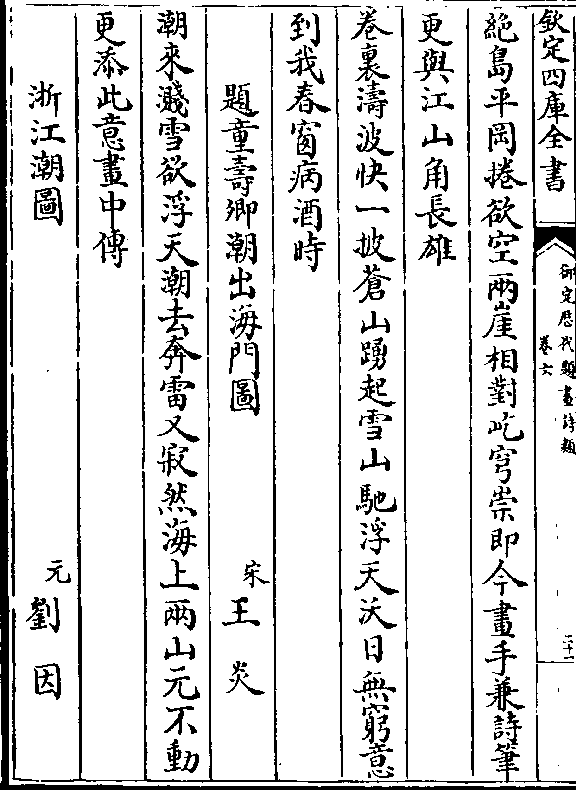 欽定四庫全書
御定歴代題畫詩類
卷六
二十一
絶島平岡捲欲空兩崖相對屹穹崇即今畫手兼詩筆
更與江山角長雄
卷裏濤波快一披蒼山踴起雪山馳浮天沃日無窮意
到我春窗病酒時
題童壽卿潮出海門圖 宋 王炎
潮來濺雪欲浮天潮去奔雷又寂然海上兩山元不動
更添此意畫中傳
浙江潮圖 元 劉因